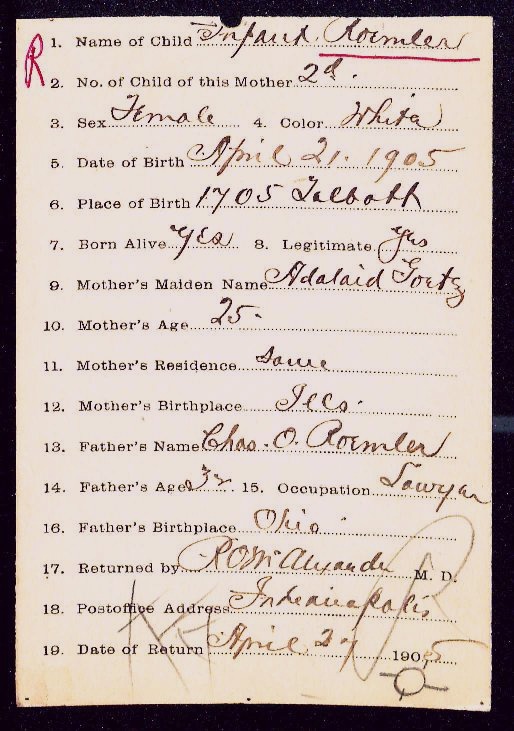 R
1. Name of Child Infant Roemler
2. No. of Child of this Mother 2d.
3. Sex Female 4. Color White
5. Date of Birth April 21. 1905
6. Place of Birth 1705 Talbott
7. Born Alive Yes 8. Legitimate Yes
9. Mother's Maiden Name Adalaid Goetz
10. Mother's Age 25.
11. Mother's Residence Same
12. Mother's Birthplace Ills.
13. Father's Name Chas. O. Roemler
14. Father's Age 32 15. Occupation Lawyer
16. Father's Birthplace Ohio
17. Returned by Alexander M. D.
18. Postoffice Address Indianapolis
19. Date of Return April 27 1905